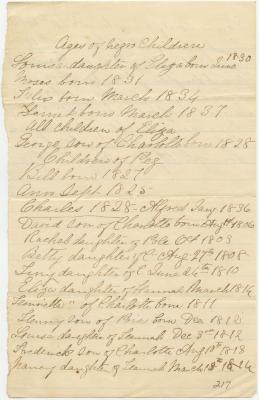 Ages of Negro Children
Louisa daughter of Eliza born June 1830
Moses born 1831
Felix born March 1834
born March 1837
All children of Eliza
George son of Charlotte born 1825
Children of Peg
Bill born 1827
Ann Sept. 1825
Charles 1828 - Alfred Jany. 1836
David son of Charlotte born Augth 1806
Rachel daughter of Oct 1803
Betty daughter of C. Aug 27th 1808
daughter of C June 24th 1810
Eliza daughter of Hannah March 1814
Henrietta " of Charlotte born 1811
Henny son of born Dec 1812
Louisa daughter of Leannah Dec 3rd 1812
Frederick son of Charlotte Aug 18th 1813
Nancy daughter of Leannah March 18th 1814
217